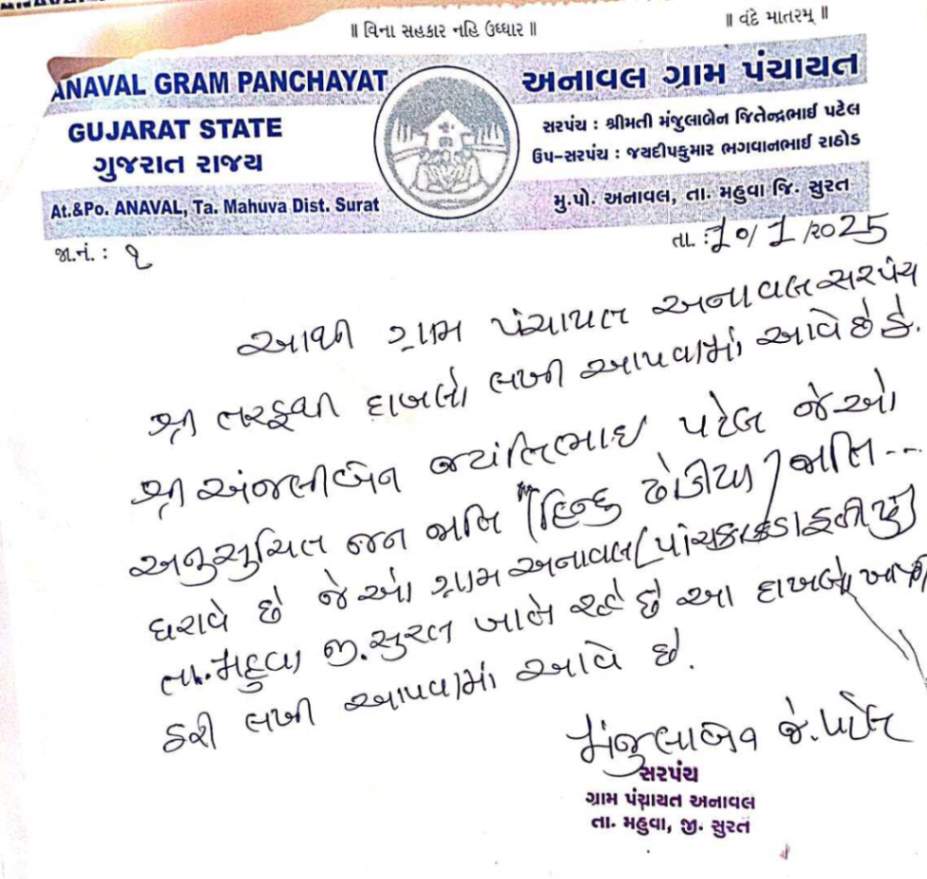 ॥ વિના સહકાર નહિ ઉધ્ધાર ॥
॥ વંદે માતરમ્ ॥
ANAVAL GRAM PANCHAYAT
GUJARAT STATE
ગુજરાત રાજ્ય
At.&Po. ANAVAL, Ta. Mahuva Dist. Surat
અનાવલ ગ્રામ પંચાયત
સરપંચ : શ્રીમતી મંજુલાબેન જિતેન્દ્રભાઈ પટેલ
ઉપ-સરપંચ : જયદીપકુમાર ભગવાનભાઈ રાઠોડ
મુ.પો. અનાવલ, તા. મહુવા જિ. સુરત
જા.નં. : ૧
તા. : 10/1/2025
આથી ગ્રામ પંચાયત અનાવલ સરપંચ
શ્રી તરફથી દાખલો લખી આપવામાં આવે છે કે.
શ્રી અંજલીબેન જયંતિભાઇ પટેલ જેઓ
અનુસુચિત જન જાતિ "(હિન્દુ ઢોડીયા) જાતિ...
ધરાવે છે જેઓ ગ્રામ અનાવલ
તા. મહુવા જી. સુરત ખાતે રહે છે આ દાખલો ખાત્રી
કરી લખી આપવામાં આવે છે.
મંજુલાબેન જે. પટેલ
સરપંચ
ગ્રામ પંચાયત અનાવલ
તા. મહુવા, જી. સુરત